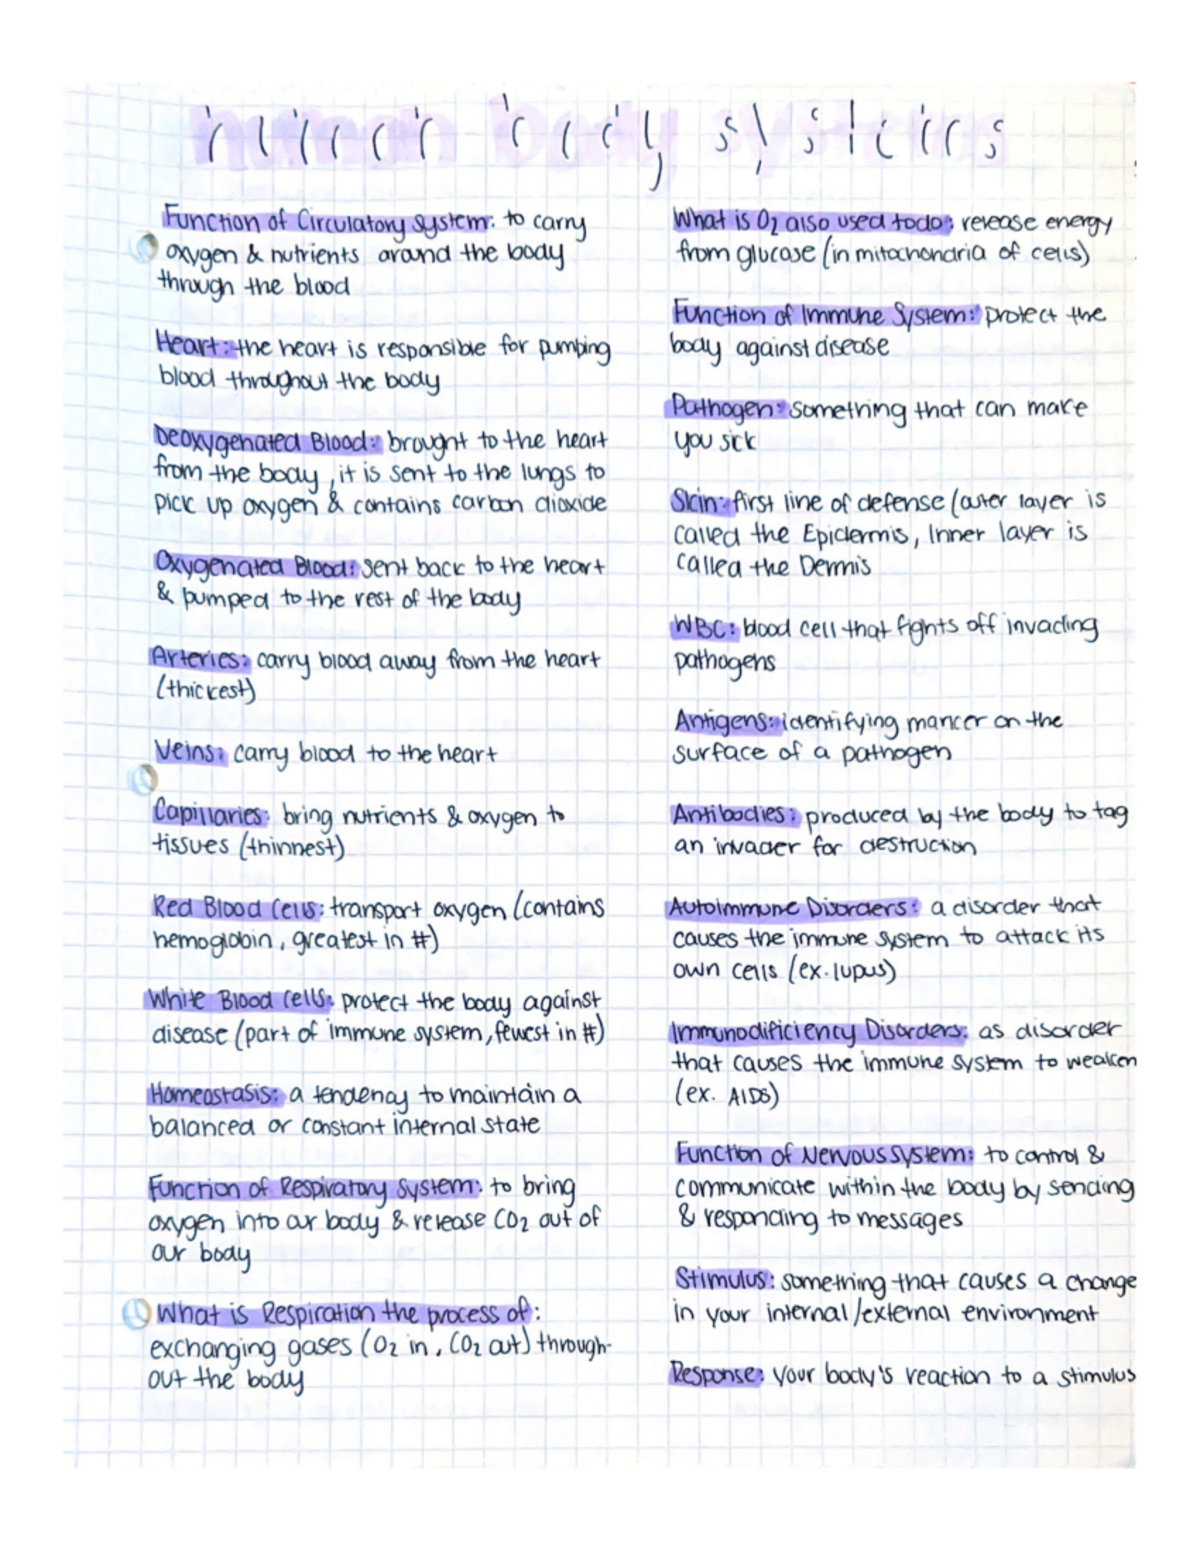 human body systems
Function of Circulatory System: to carry
oxygen & nutrients around the body
through the blood
Heart: the heart is responsible for pumping
blood throughout the body
Deoxygenated Blood: brought to the heart
from the body, it is sent to the lungs to
pick up oxygen & contains carbon dioxide
Oxygenated Blood: sent back to the heart
& pumped to the rest of the body
Arteries: carry blood away from the heart
(thickest)
Veins: carry blood to the heart
Capillaries: bring nutrients & oxygen to
tissues (thinnest)
Red Blood Cells: transport oxygen (contains
hemoglobin, greatest in #)
White Blood Cells: protect the body against
disease (part of immune system, fewest in #)
Homeostasis: a tendency to maintain a
balanced or constant internal state
Function of Respiratory System: to bring
oxygen into our body & release CO2 out of
our body
What is Respiration the process of:
exchanging gases (O2 in, CO2 out) through-
out the body
What is O2 also used to do: release energy
from glucose (in mitochondria of cells)
Function of Immune System: protect the
body against disease
Pathogen: something that can make
you sick
Skin: first line of defense (outer layer is
called the Epidermis, Inner layer is
called the Dermis
WBC: blood cell that fights off invading
pathogens
Antigens: identifying marker on the
surface of a pathogen
Antibodies: produced by the body to tag
an invader for destruction
Autoimmune Disorders: a disorder that
causes the immune system to attack its
own cells (ex. lupus)
Immunodificiency Disorders: as disorder
that causes the immune system to weaken
(ex. AIDS)
Function of Nervous System: to control &
communicate within the body by sending
& responding to messages
Stimulus: something that causes a change
in your internal/external environment
Response: your body's reaction to a stimulus